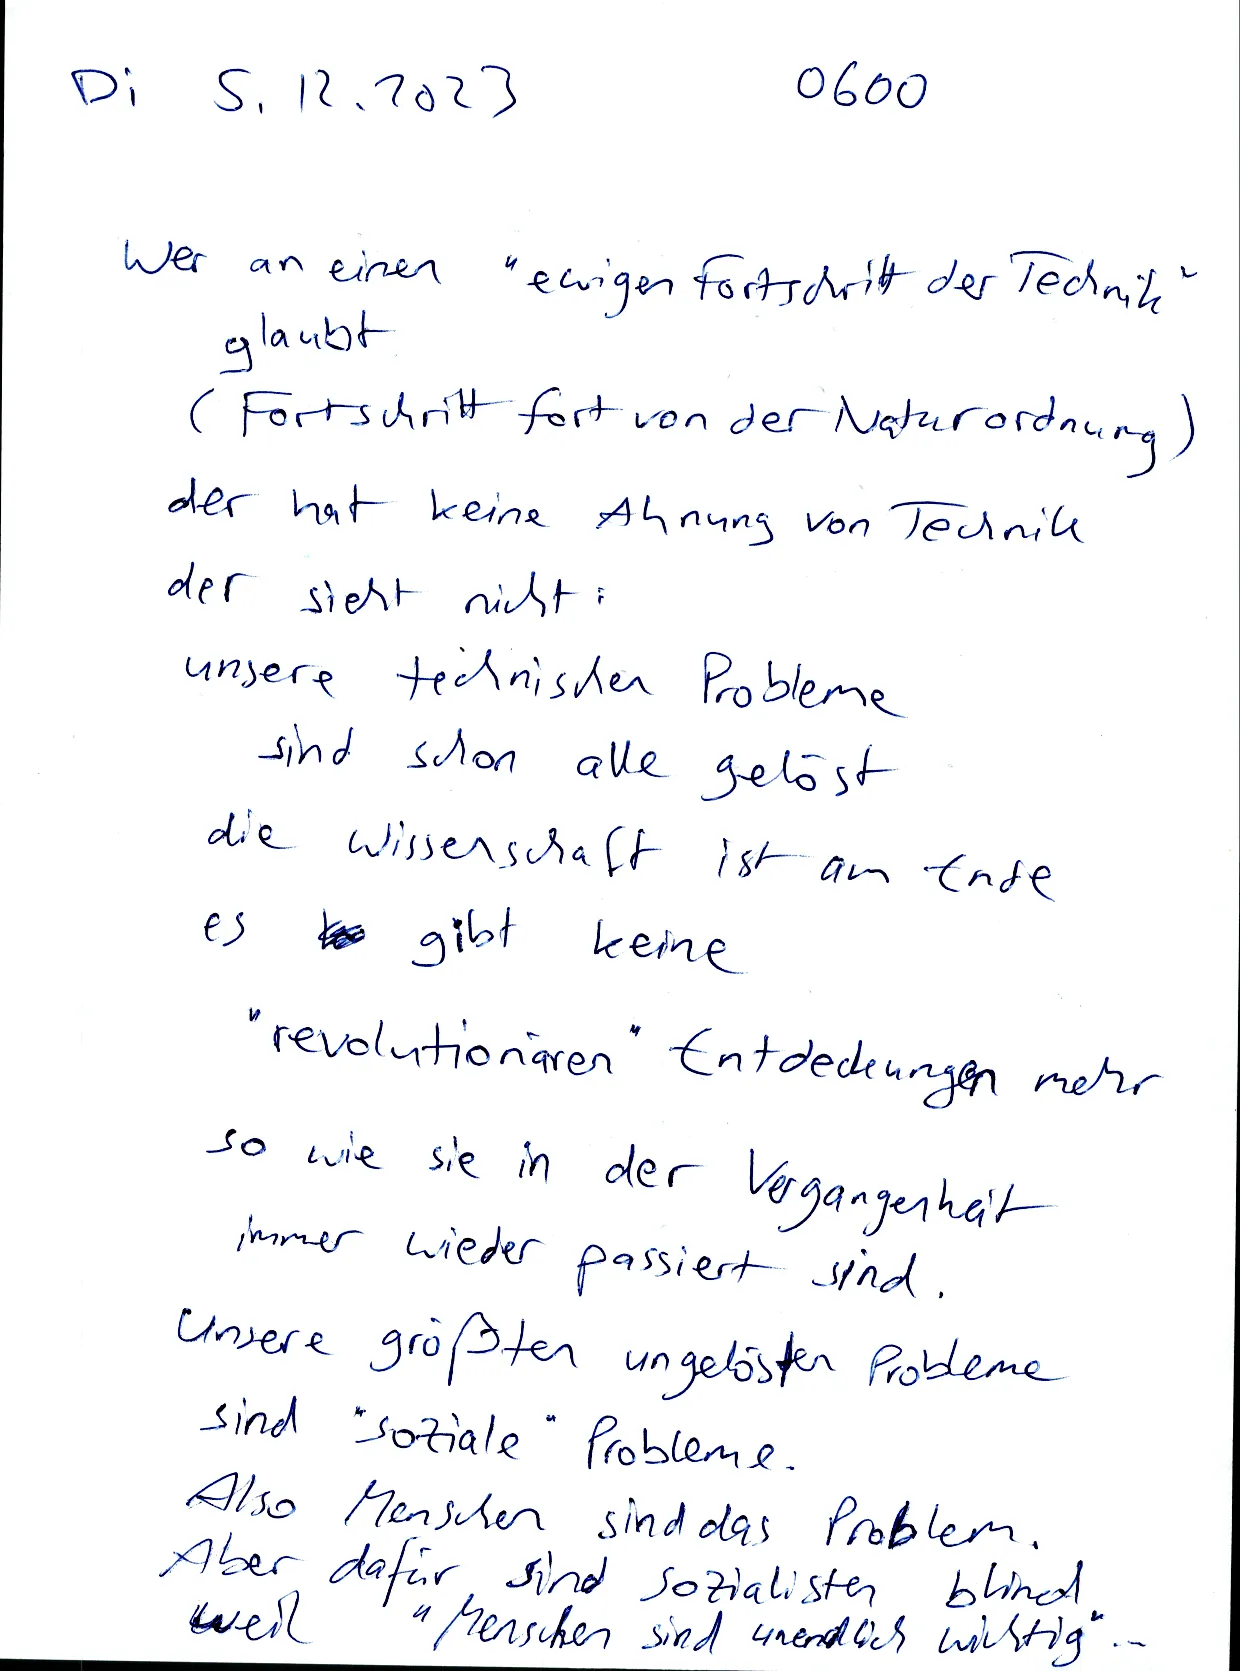 Di 5.12.2023 0600
Wer an einen "ewigen Fortschritt der Technik"
glaubt
(Fortschritt fort von der Naturordnung)
der hat keine Ahnung von Technik
der sieht nicht:
unsere technischen Probleme
sind schon alle gelöst
die Wissenschaft ist am Ende
es gibt keine
"revolutionären" Entdeckungen mehr
so wie sie in der Vergangenheit
immer wieder passiert sind.
Unsere größten ungelösten Probleme
sind "soziale" Probleme.
Also Menschen sind das Problem.
Aber dafür sind Sozialisten blind
weil "Menschen sind unendlich wichtig"...